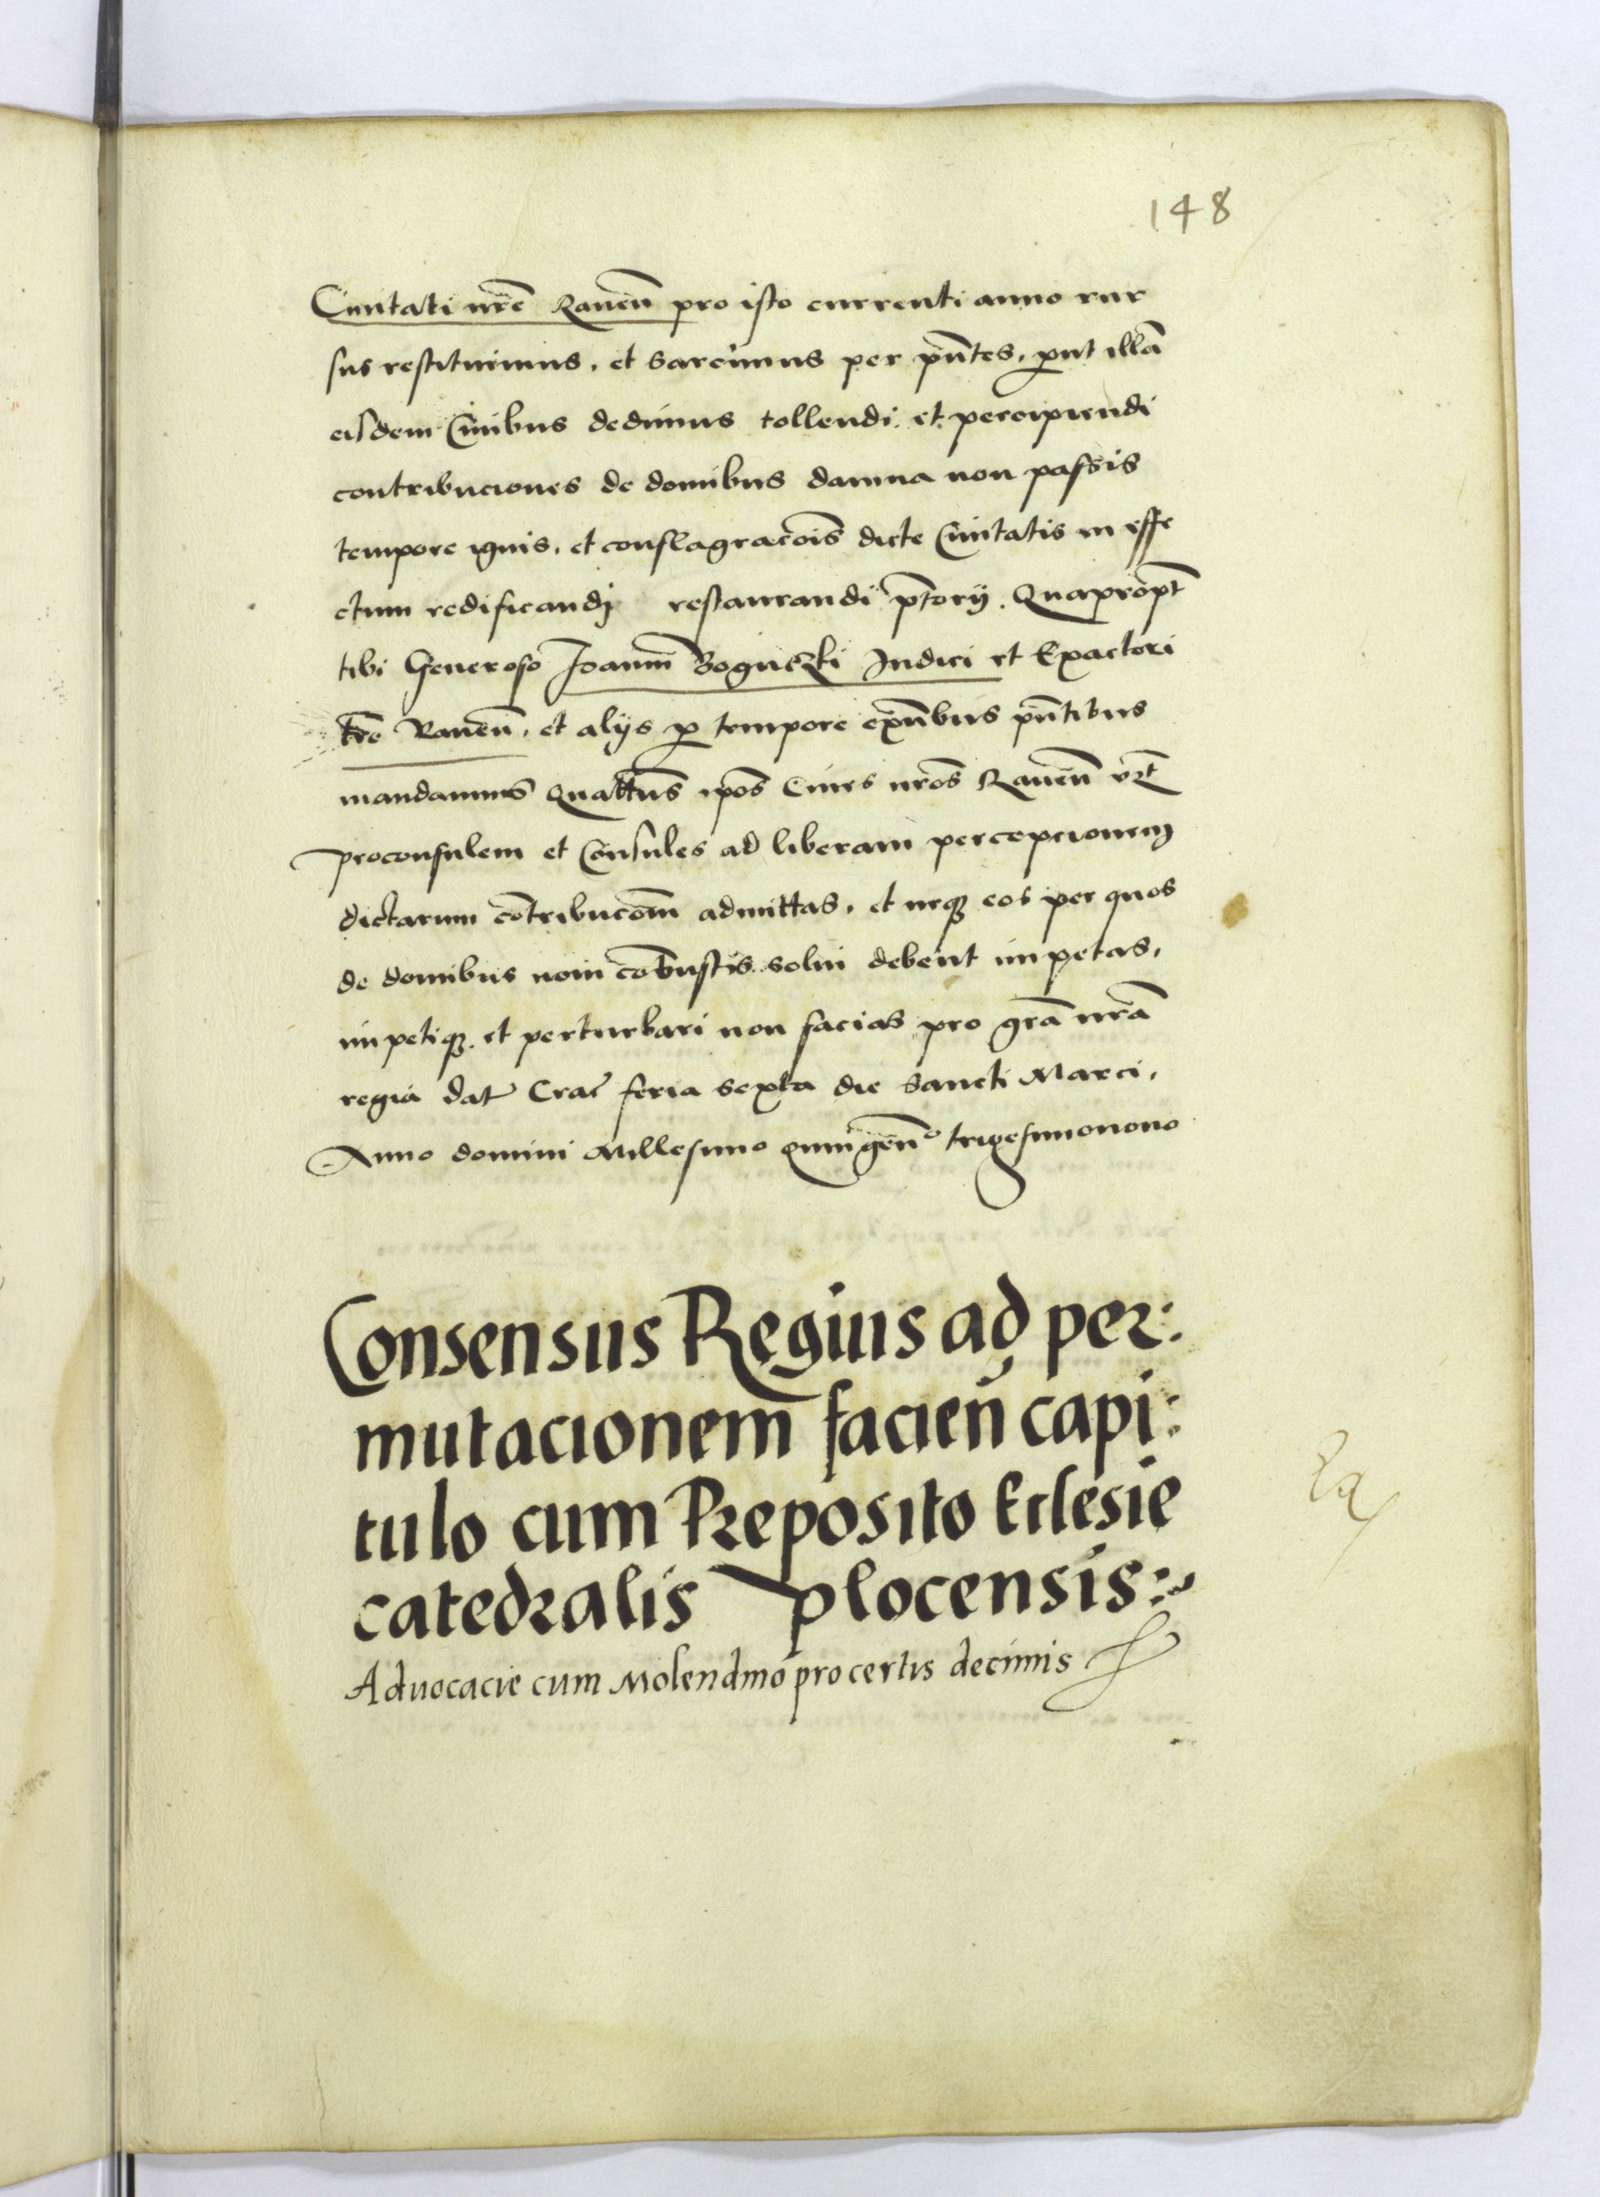 148
Ciuitati nr̄e Rauen̄ pro isto currenti anno rur
sus restituimus, et sarcimus per pn̄tes, put illā
eisdem Ciuibus dedimus tollendi et percipiendi
contribuciones de domibus damna non passis
tempore ignis, et conflagracōis dicte Ciuitatis in effe
ctum redificandj restaurandi p̄torij. Quapropt̄
tibi Generoso Joanni Boguszki Judici et Exactori
tr̄e Rauen̄, et alijs p tempore exn̄bus pn̄tibus
mandamus Quat̄tus ip̄os Ciues nr̄os Rauen̄ vz̄t
proconsulem et Consules ad liberam percepcionem
dictarum cōtribucōm admittas, et neqꝫ eos per quos
de domibus non cōbustis solui debent impetas,
impetiqꝫ et perturbari non facias pro gr̄a nr̄a
regia dat Crac̄ feria sexta die Sancti Marci,
Anno domini Millesimo quingen̄o trigesimonono
Consensus Regius ad per:
mutacionem facien̄ capi:
tulo cum Preposito Eclesie
catedralis plocensis:
Aduocacie cum Molendino pro certis decimis